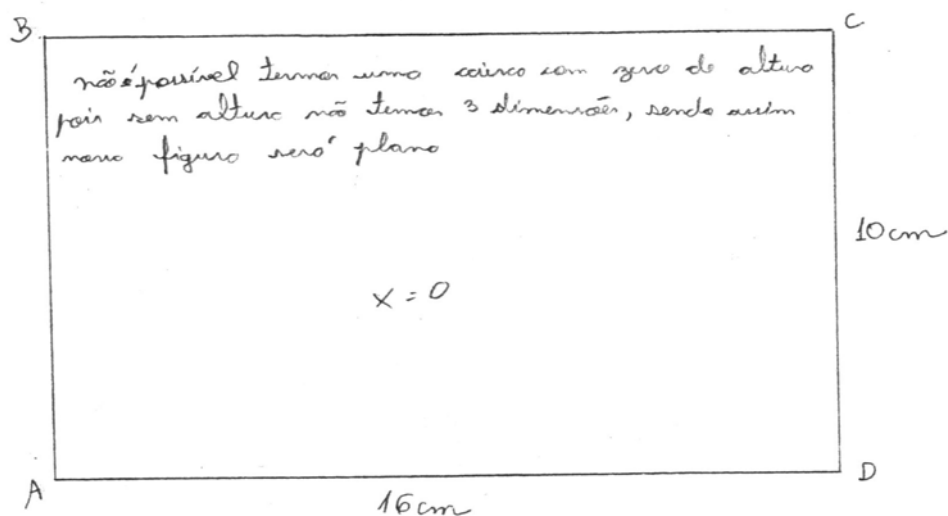 B
C
não é possível termos uma caixa com zero de altura
pois sem altura não temos 3 dimensões, sendo assim
nossa figura será plana
10cm
x = 0
A
D
16cm